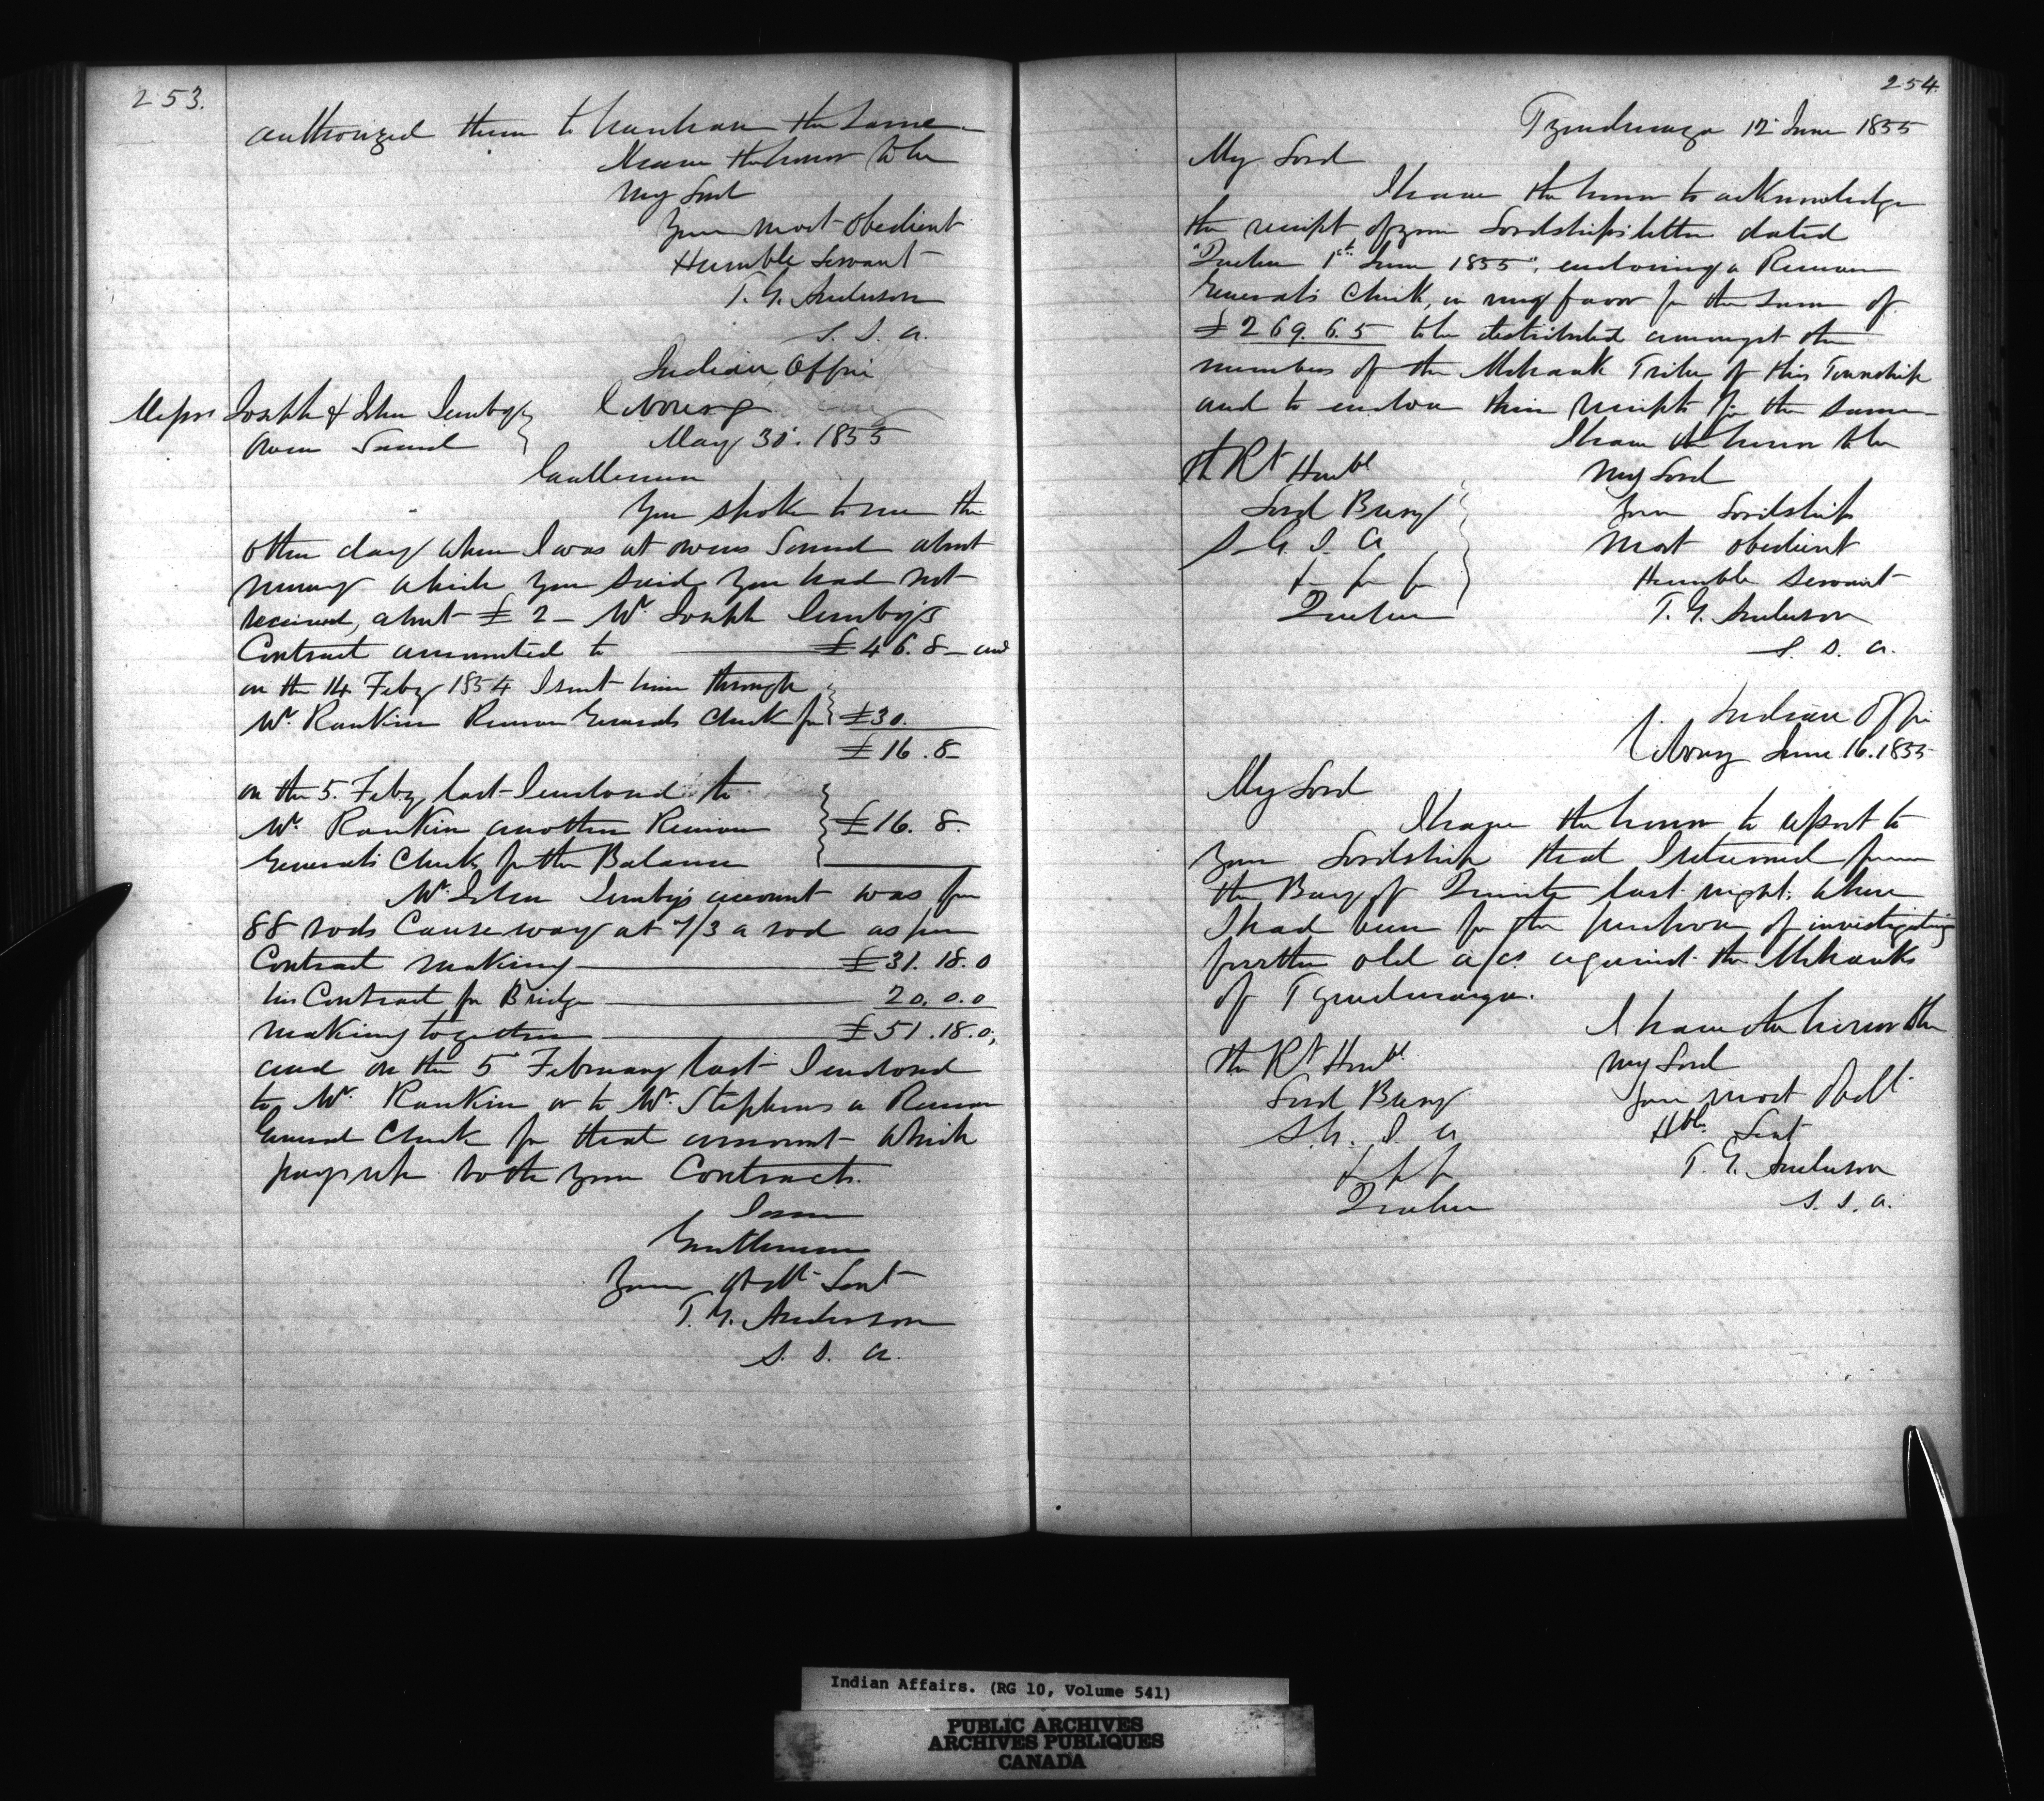 253.
authorized them to transfer the same.
I have the honor to be
My Lord
Your most obedient
Humble Servant
T. G. Anderson
S. I. A.
Indian Office
Messrs Joseph & John Lemby
Owen Sound
Cobourg
May 30. 1855
Gentlemen
You spoke to me the
other day when I was at Owens Sound about
money which you said you had not
received, about £2 – Mr. Joseph Lemby's
Contract amounted to £46. 8 – and
on the 14 Feby 1854 I sent him through
Mr. Rankin Receiver Generals Check for £30.
£16. 8
on the 5. Feby last I enclosed to
Mr. Rankin another Receiver £16. 8.
General's Check for the Balance
Mr. John Lemby's account was for
88 rods Causeway at 7/3 a rod as per
Contract making £31. 18. 0
his Contract for Bridge 20. 0. 0
making together £51. 18. 0;
and on the 5 February last I enclosed
to Mr. Rankin or to Mr. Stephens a Receiver
General Check for that amount which
pays up both your Contracts.
I am
Gentlemen
Your Obdt Servt
T. G. Anderson
S. I. A.
254.
Tyendinaga 12 June 1855
My Lord
I have the honor to acknowledge
the receipt of your Lordships letter dated
"Quebec 1st June 1855", enclosing a Receiver
General's Check, in my favor for the sum of
£269. 6. 5 to be distributed amongst the
members of the Mohawk Tribe of this Township
and to enclose their receipts for the same –
I have the honor to be
My Lord
Your Lordship
Most obedient
Humble Servant
T. G. Anderson
S. I. A.
The Rt Honbl
Lord Bury
S. G. I. A
Quebec
Indian Office
Cobourg June 16. 1855
My Lord
I have the honor to report to
your Lordship that I returned from
the Bay of Quinte last night, where
I had been for the purpose of investigating
further old a/cs against the Mohawks
of Tyendinaga.
I have the honor to be
My Lord
Your most Obdt
Hble Servt
T. G. Anderson
S. I. A.
The Rt Honbl
Lord Bury
S. G. I. A
Quebec
Indian Affairs. (RG 10, Volume 541)
PUBLIC ARCHIVES
ARCHIVES PUBLIQUES
CANADA